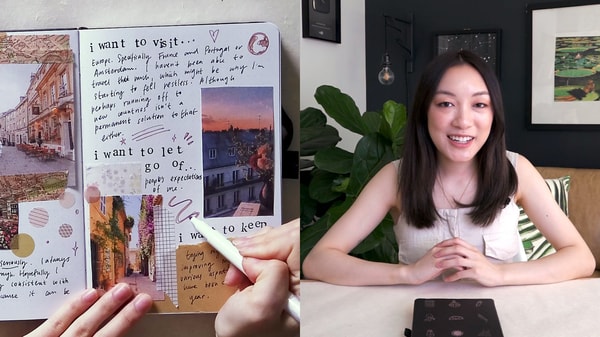 i want to visit...
Europe. Specifically France and Portugal or
Amsterdam. I haven't been able to
travel that much, which might be why I'm
starting to feel restless. Although
perhaps running off to
new countries isn't a
permanent solution to that
either.
i want to let
go of...
peoples expectations
of me.
i want to keep
trying
improving
various aspects
have been
year.
I always
consistent with
because it can be